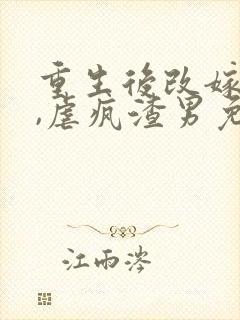 重生後改嫁
,虐疯渣男免
江雨涔